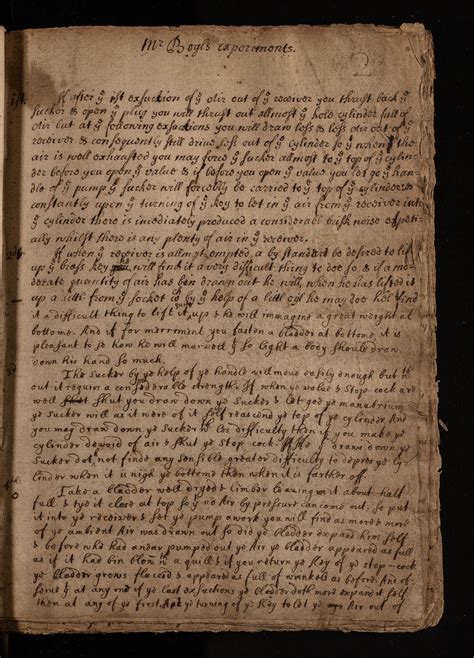 Mr Boyls experiments.
2
1st. If after ye 1st exsuction of ye air out of ye receiver you thrust back ye
sucker & open ye plug you will thrust out allmost ye hole cylinder full of
air but at ye following exsuctions you will draw less & less air out of ye
receiver & consequently still drive less out of ye cylinder so yt when the
air is well exhausted you may force ye sucker allmost to ye top of ye cylin-
der before you open ye value & if before you open ye value you let go ye han-
dle of ye pump ye sucker will forcebly be carried to ye top of ye cylinder &
constantly upon ye turning of ye key to let in ye air from ye receiver into
ye cylinder there is imediately produced a considerabl brisk noise especi-
ally whilst there is any plenty of air in ye receiver.
If when ye receiver is allmost emptied a by stander be desired to lift
up ye brass key will find it a very difficult thing to doe so & if a mo-
derate quantity of air has ben drawn out he will, when he has lifted it
up a littl from ye socket by ye help of a littl oil he may doe find
it a difficult thing to lift it up & he will immagine a great weight at
bottome. And if for merriment you fasten a bladder at bottome it is
pleasant to se how he will marvell yt so light a body should draw
down his hand so much.
The sucker by ye help of ye handle will move easily enough but
out it requires a considerable strength. If when ye value & stop-cock are
well shut you draw down ye sucker & let goe ye manubrium
ye sucker will as it were of it self reascend ye top of ye cylinder And
you may draw down ye sucker wth les difficulty then if you make ye
cylinder devoid of air & shut ye stop-cock. draws down ye
sucker dot not finde any sensible greater difficulty to depres ye cy-
linder when it is nigh ye bottome then when it is farther off.
Take a bladder well dryed & limber leaving in it about half
full & tye it close at top so yt no Air by pressure can come out. so put
it into ye receiver & set ye pump awork you will find as more & more
of ye ambient Air was drawn out so did ye bladder expand him self
& before who had andar pumped out ye Air ye bladder appeared as full
as if it had bin blown wth a quill & if you return ye key of ye stop-cock
ye bladder grows flaccid & appeared as full of wrinckels as before. And ob-
serve yt at any end of ye last exsuctions ye bladder doth more expand it self
then at any of ye first. ye turning of ye key to let ye Air out of